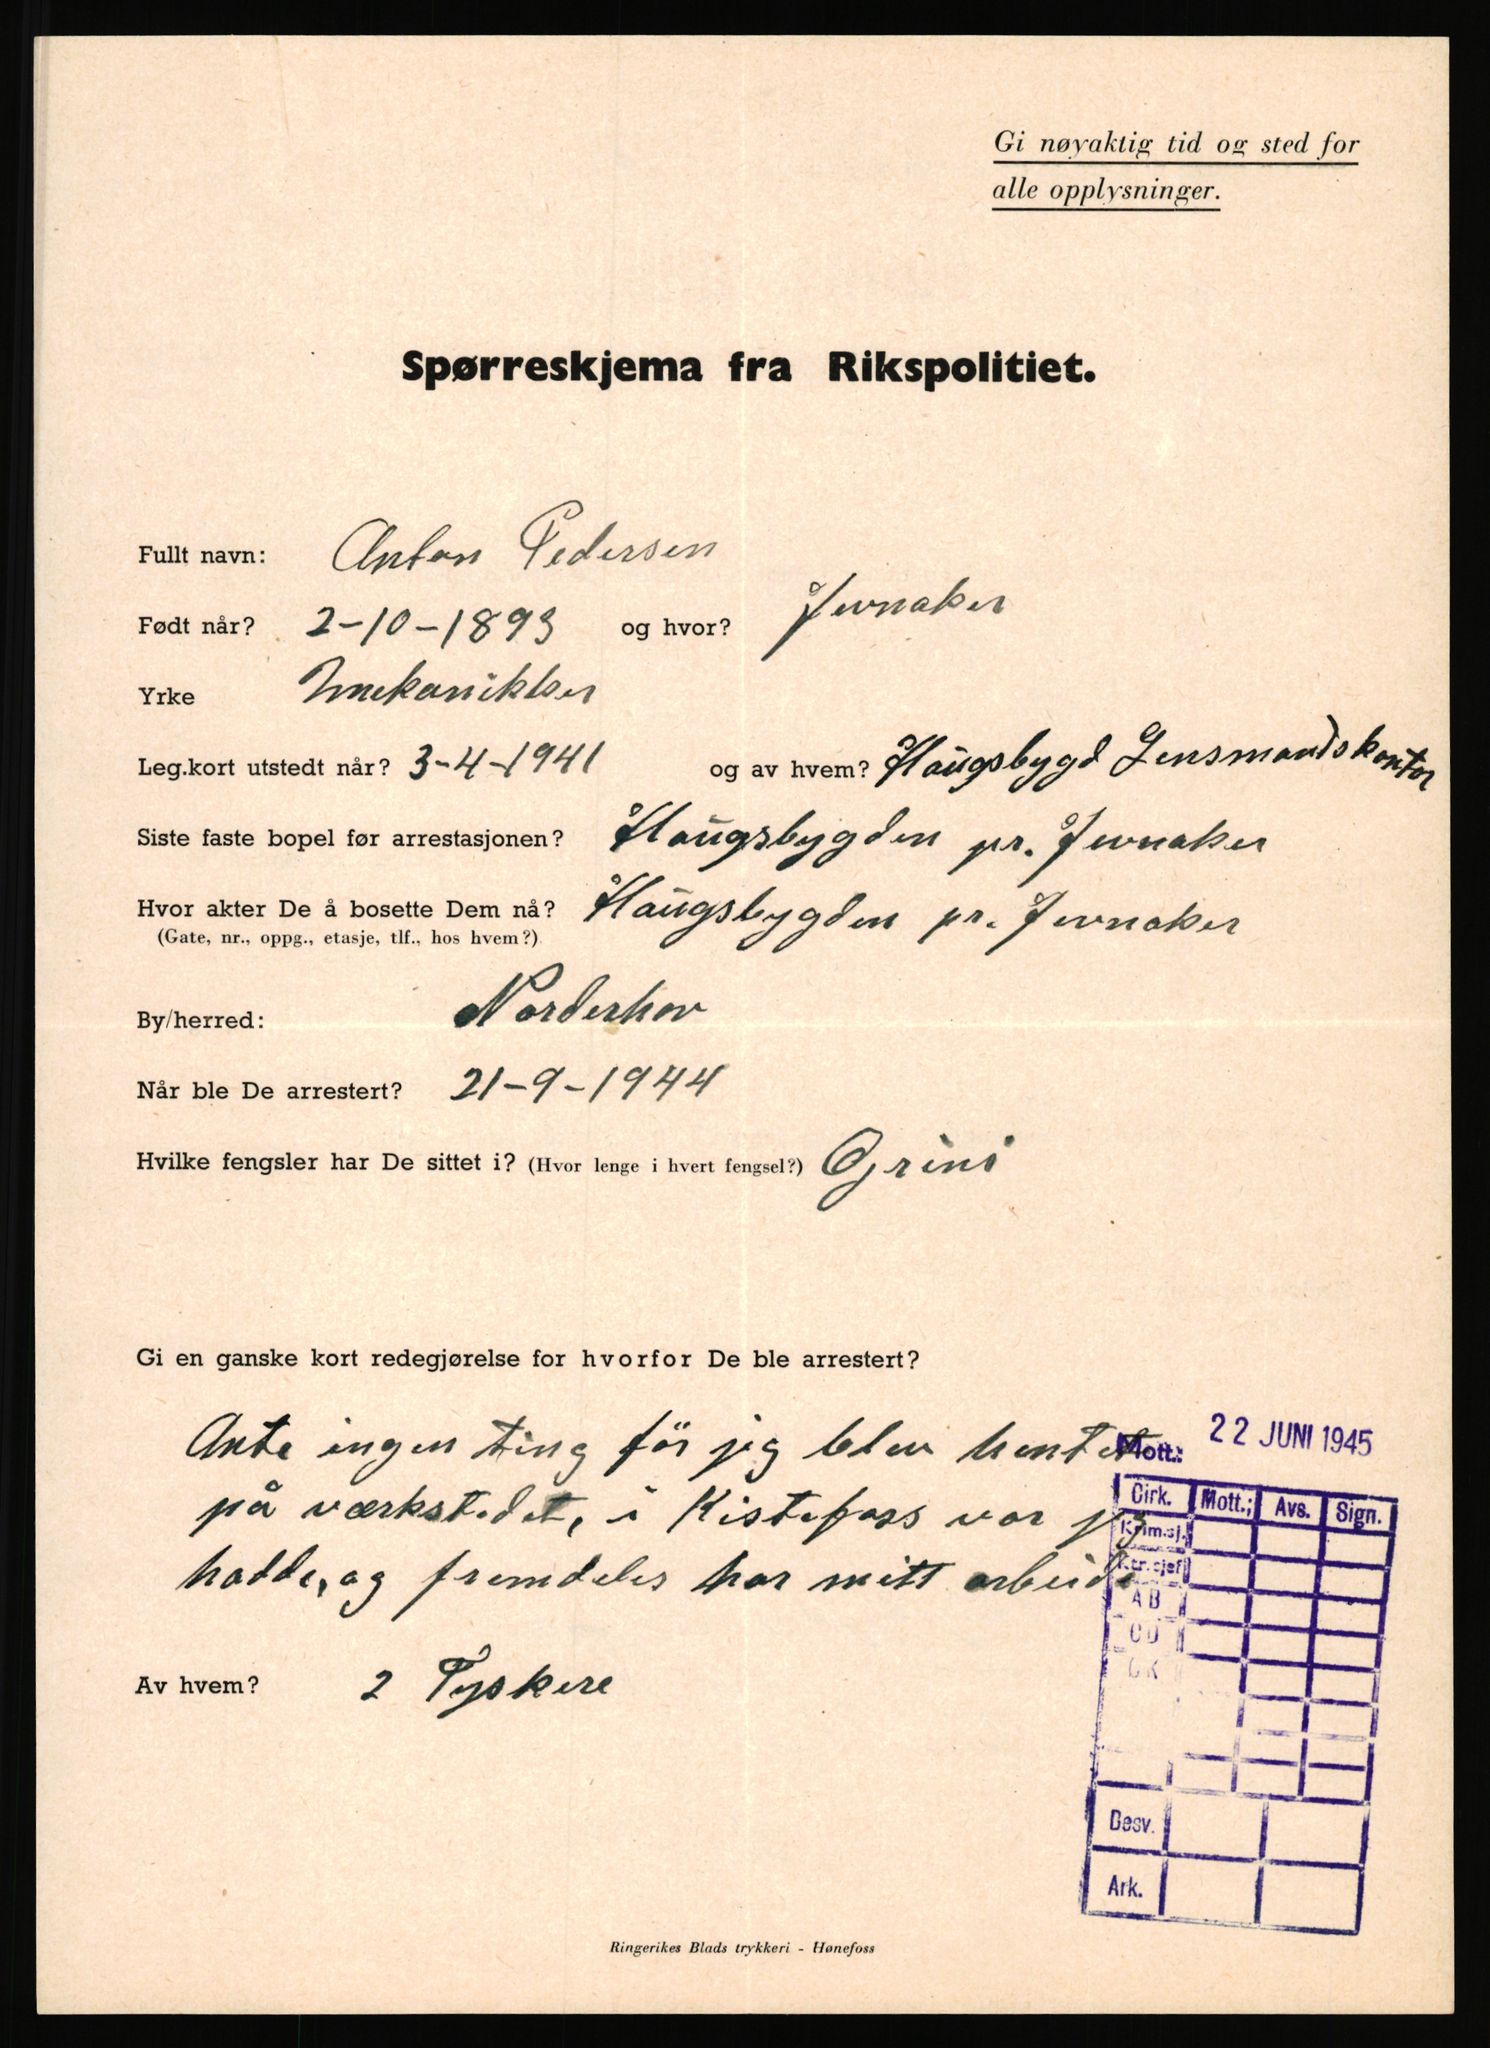 Gi nøyaktig tid og sted for
alle opplysninger.
Spørreskjema fra Rikspolitiet.
Fullt navn: Anton Pedersen
Født når? 2-10-1893 og hvor? Jevnaker
Yrke mekanikker
Leg.kort utstedt når? 3-4-1941 og av hvem? Haugsbygd Lensmandskontor
Siste faste bopel før arrestasjonen? Haugsbygden pr. Jevnaker
Hvor akter De å bosette Dem nå? Haugsbygden pr. Jevnaker
(Gate, nr., oppg., etasje, tlf., hos hvem?)
By/herred: Norderhov
Når ble De arrestert? 21-9-1944
Hvilke fengsler har De sittet i? (Hvor lenge i hvert fengsel?) Grini
Gi en ganske kort redegjørelse for hvorfor De ble arrestert?
Ante ingen ting för jeg blev hentet
på værkstedet, i Kistefoss vor jeg
hadde, og fremdeles har mitt arbeide
Av hvem? 2 Tyskere
Mott.: 22 JUNI 1945
Cirk. Mott.; Avs. Sign.
Krim.sj.
AB
CD
Desv.
Ark.
Ringerikes Blads trykkeri - Hønefoss